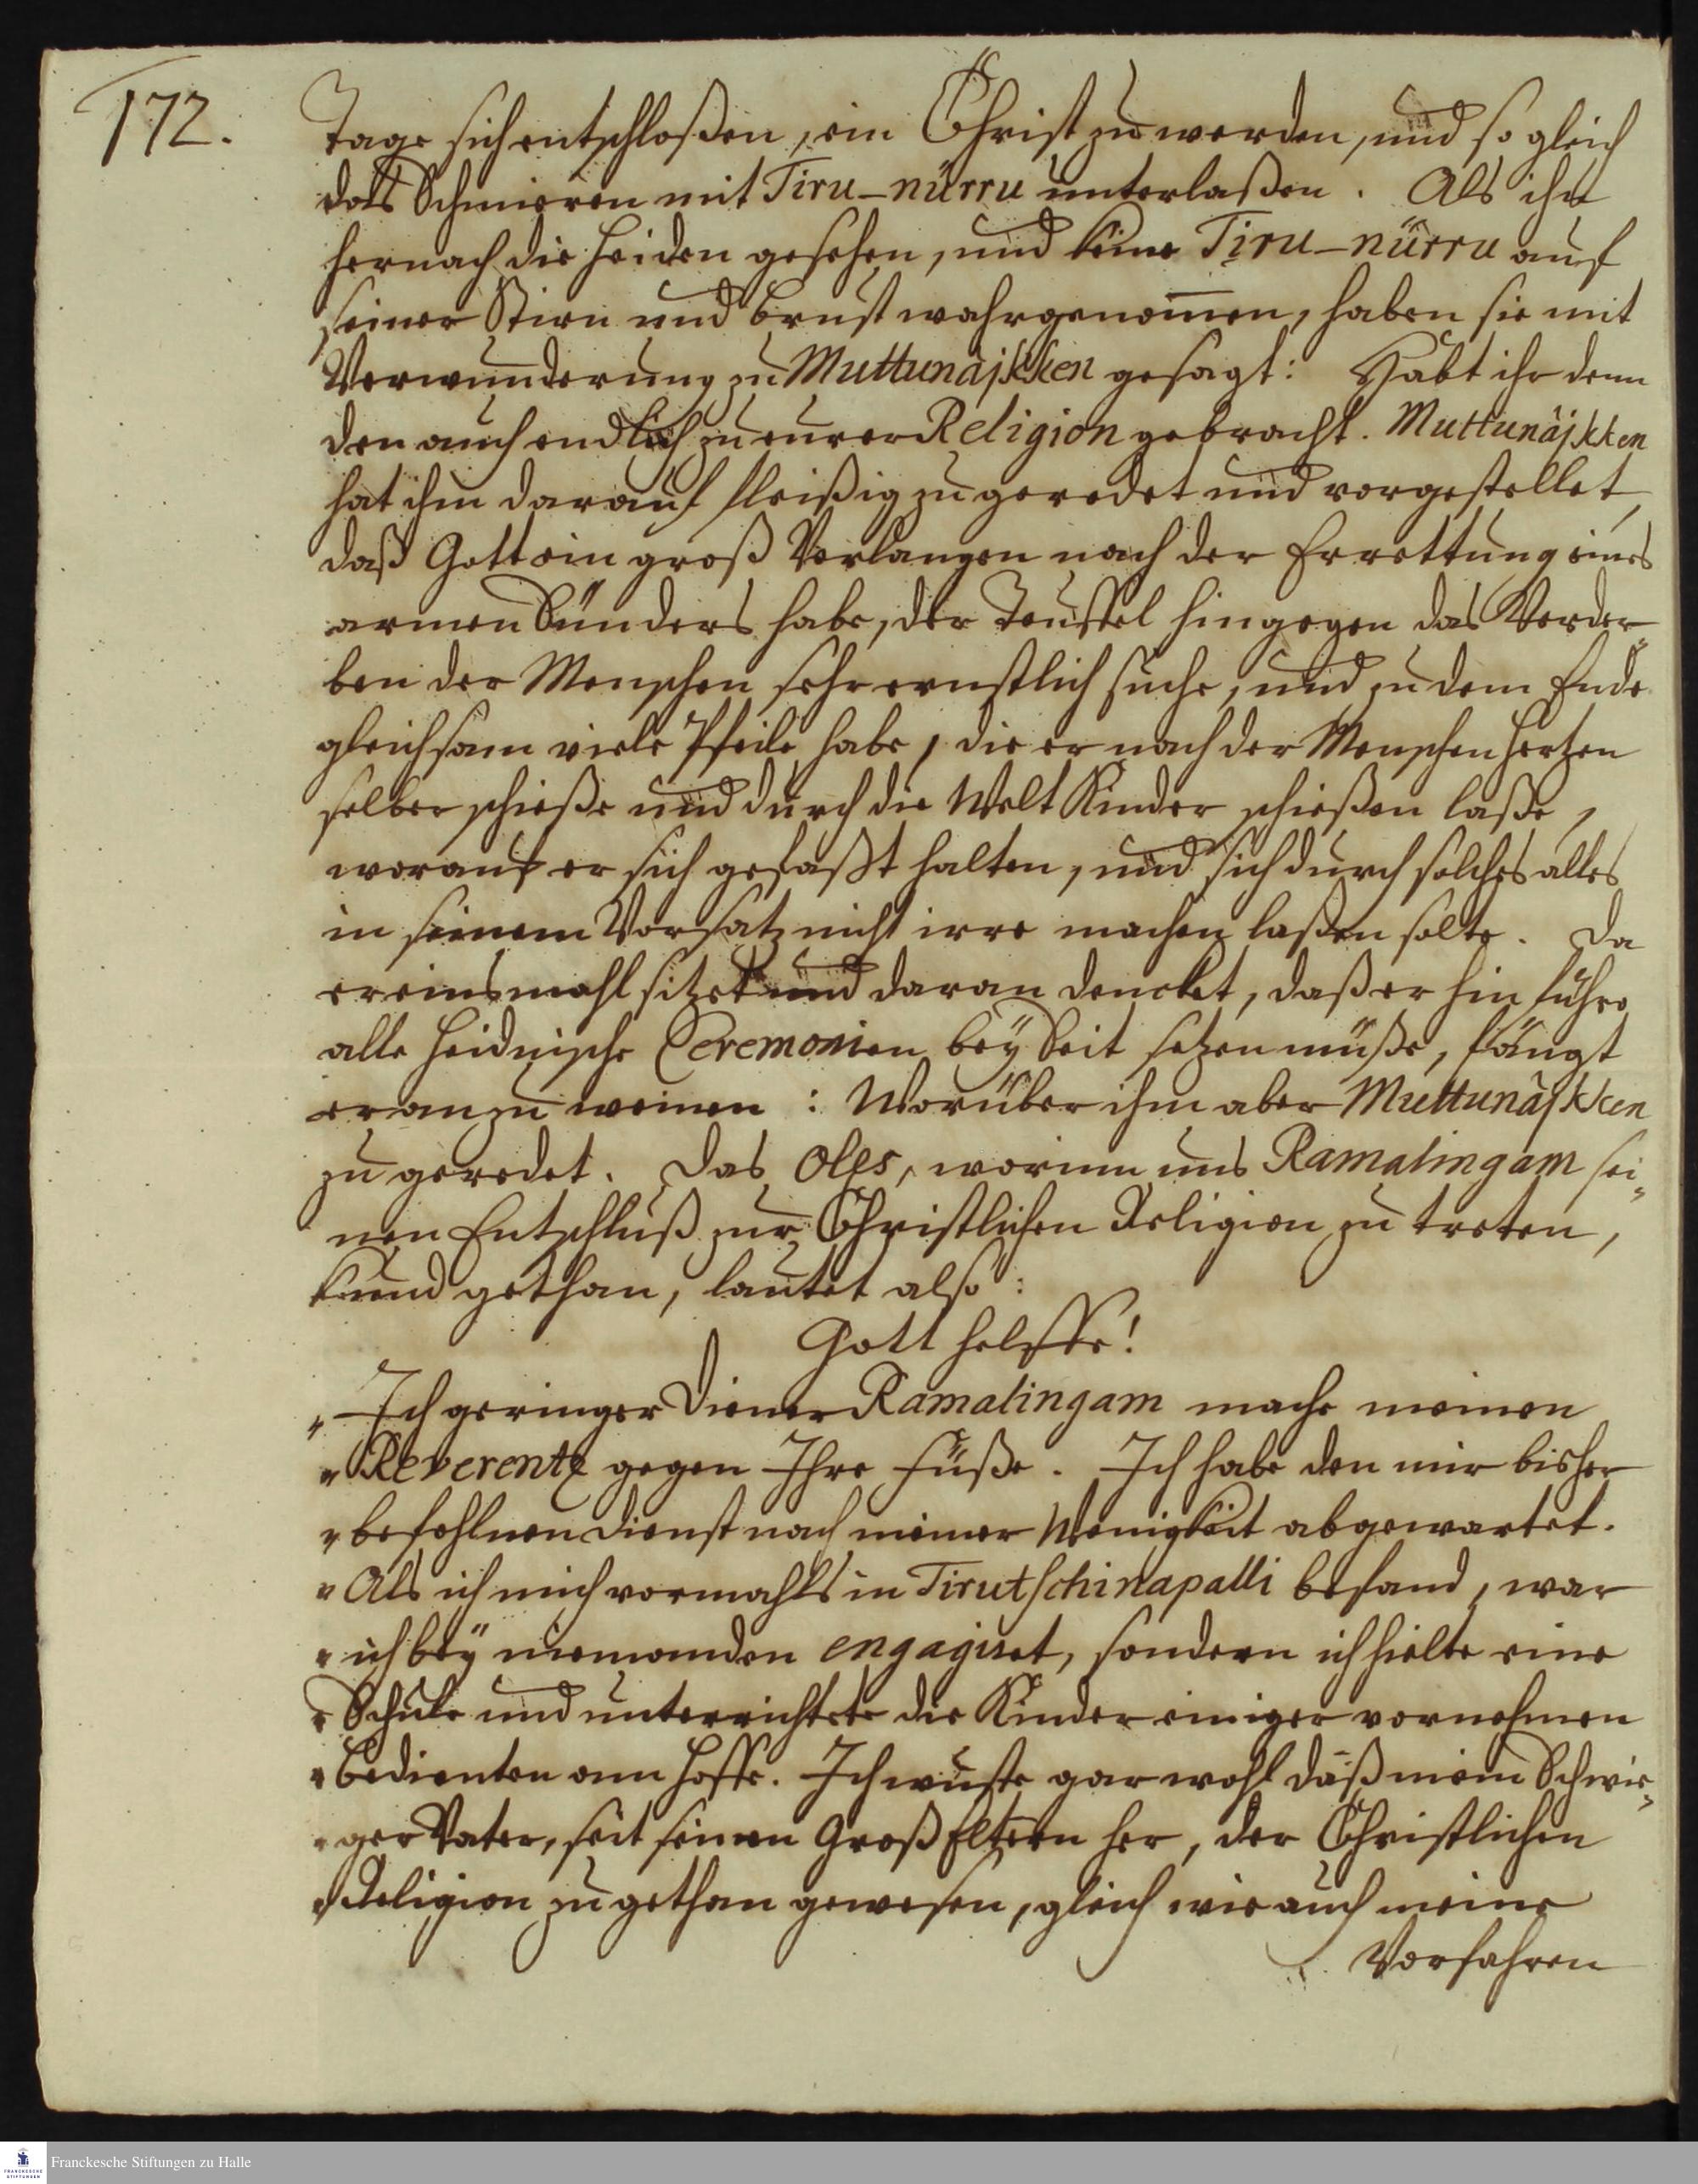 172.
Tage sich entschloßen, ein Christ zu werden, und so gleich
das Schmieren mit Tiru-nürru unterlaßen. Als ihn
hernach die Heiden gesehen, und keine Tiru-nürru auf
seiner Stirn und Brust wahrgenom̅en, haben sie mit
Verwunderung zu Muttunâjkken gesagt: Habt ihr denn
den auch endlich zu eurer Religion gebracht. Muttunâjkken
hat ihm darauf fleißig zu geredet und vorgestellet,
daß Gott ein groß Verlangen nach der Errettung eines
armen Sünders habe, der Teuffel hingegen das Verder-
ben der Menschen sehr ernstlich suche, und zu dem Ende
gleichsam viele Pfeile habe, die er nach der Menschen Hertzen
selber schieße und durch die Welt Kinder schießen laße,
worauf er sich gefaßt halten, und sich durch solches alles
in seinem Vorsatz nicht irre machen laßen solte. Da
er einsmahl sitzet und daran dencket, daß er hin führo
alle Heidnische Ceremonien bey Seit setzen müße, fängt
er an zu weinen: Worüber ihm aber Muttunâjkken
zu geredet. Das Oles, worinn uns Ramalingam sei-
nen Entschluß zur Christlichen Religion zu treten,
kund gethan, lautet also:
Gott helffe!
" Ich geringer Diener Ramalingam mache meinen
" Reverentz gegen Ihre Füße. Ich habe den mir bisher
" befohlnen Dienst nach meiner Wenigkeit abgewartet.
" Als ich mich vormahls in Tirutschinapalli befand, war
" ich bey niemanden engagiret, sondern ich hielte eine
" Schule und unterrichtete die Kinder einiger vornehmen
" Bedienten am Hoffe. Ich wuste gar wohl daß mein Schwie-
" ger Vater, seit seinen Groß Eltern her, der Christlichen
" Religion zu gethan gewesen, gleich wie auch meine
Vorfahren
Franckesche Stiftungen zu Halle